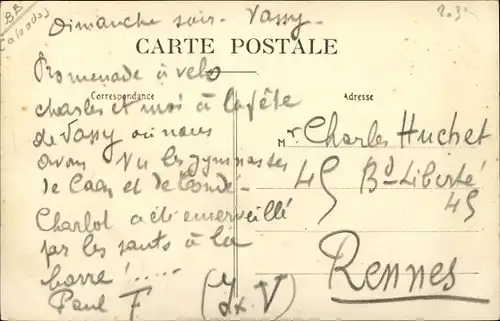 8A
(Calvados)
Dimanche soir - Vassy -
CARTE POSTALE
Correspondance
Adresse
Promenade à velo
charles et moi à la fête
de Vassy où nous
avons vu les gymnastes
de Caen et de Condé -
Charlot a été emerveillé
par les sauts à la
barre !.....
Paul F
Mr Charles Huchet
45 Bd Liberté
45
Rennes